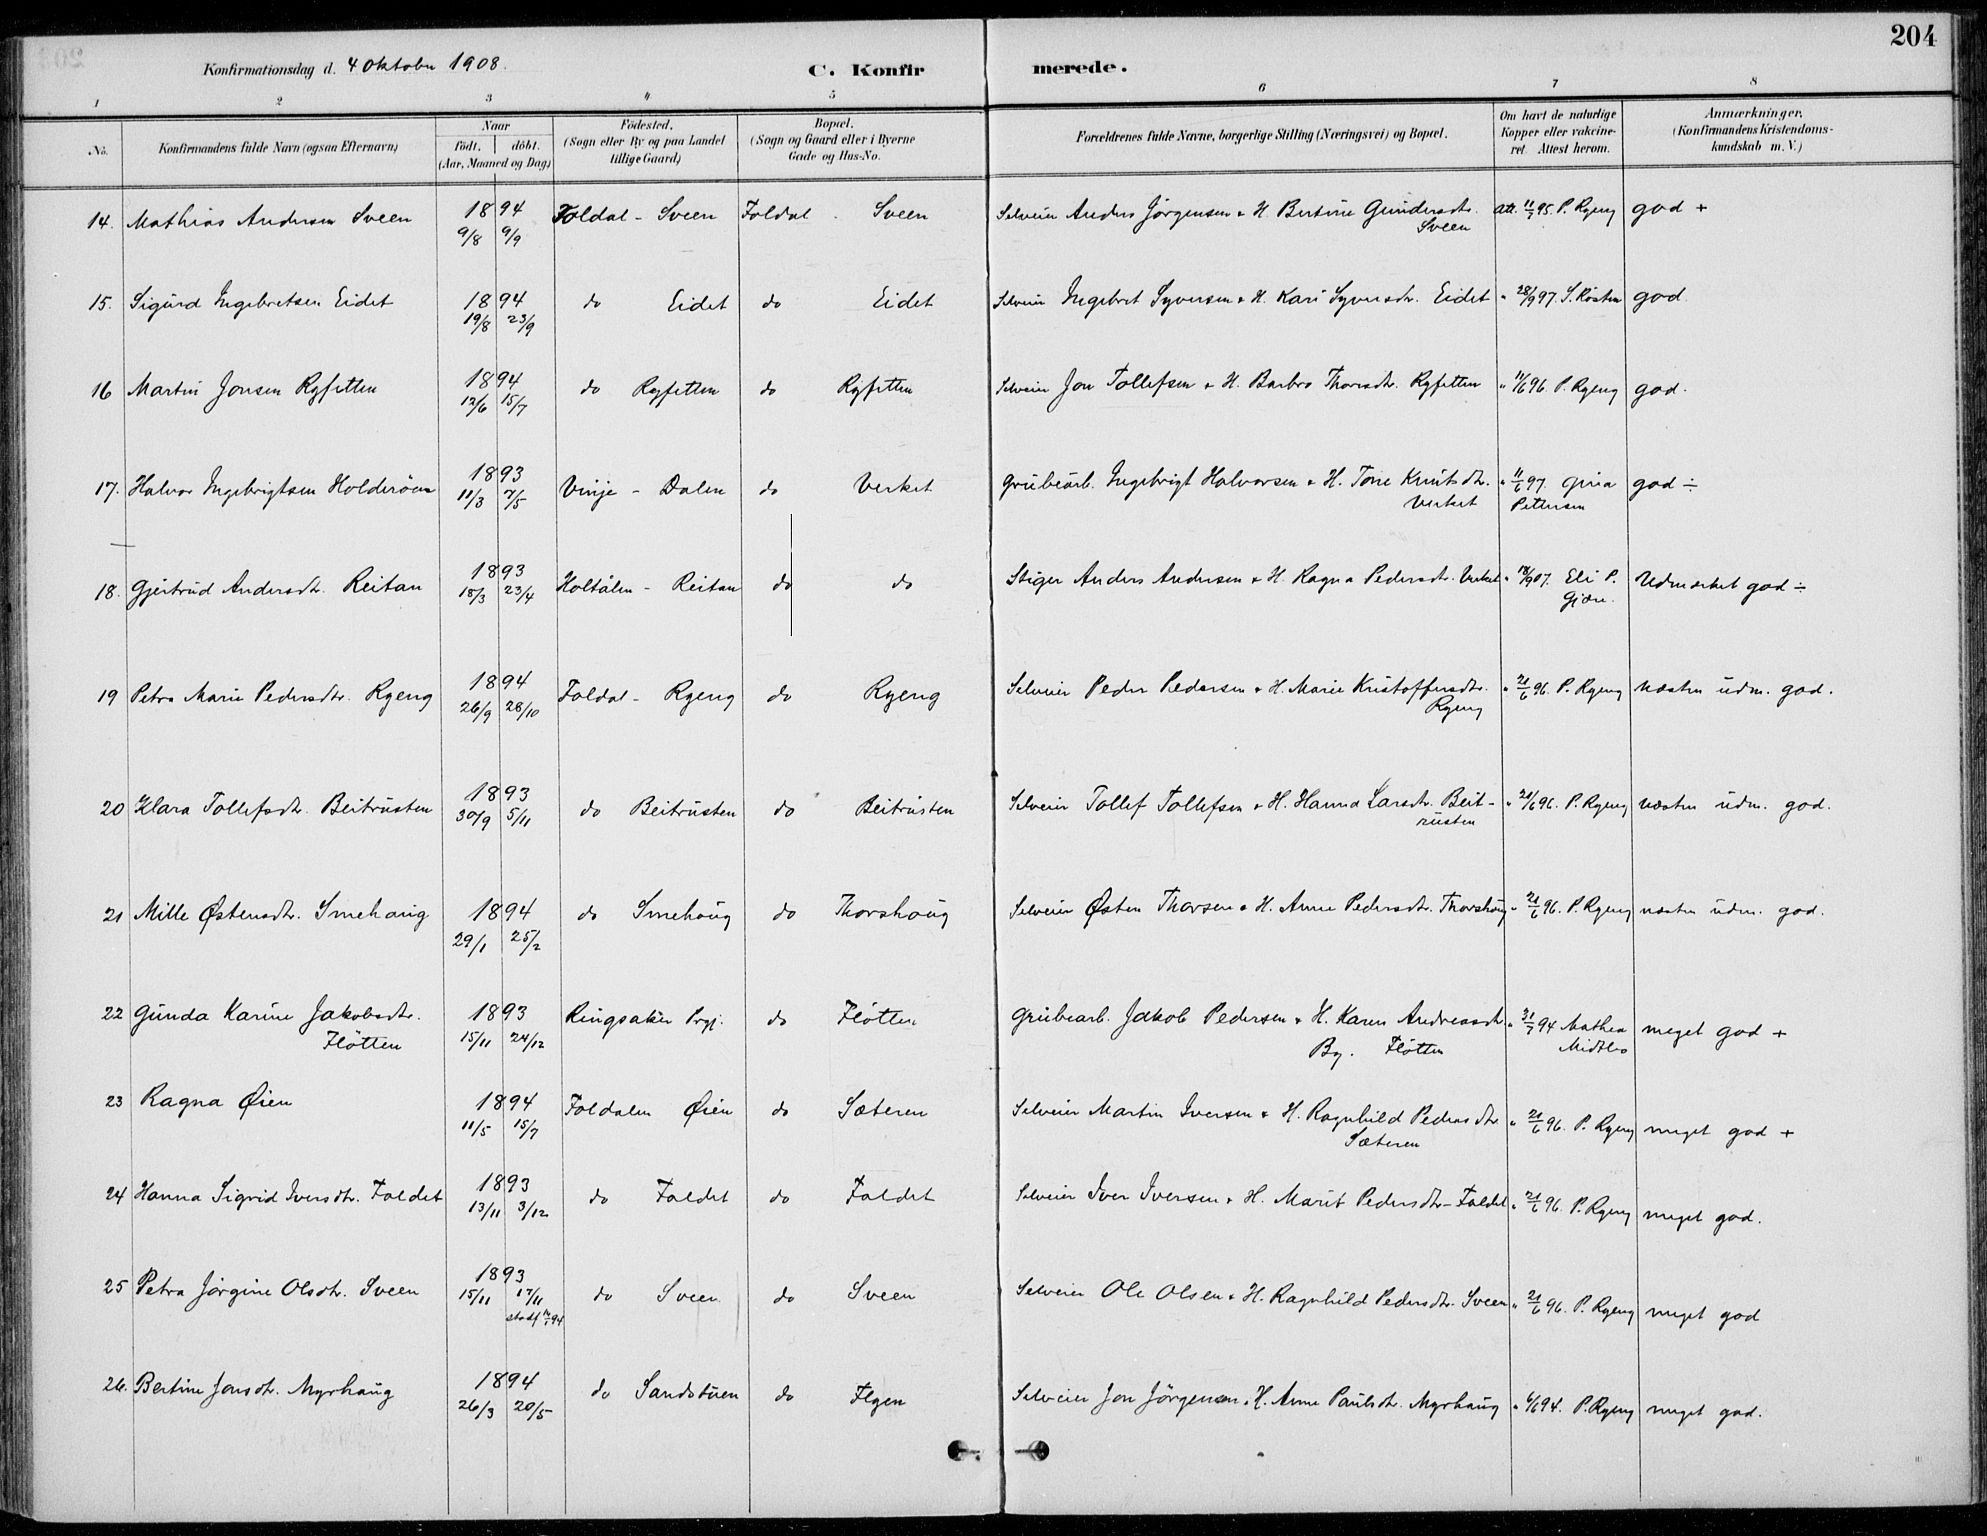 204
Konfirmationsdag d. 4 Oktober 1908.
C. Konfir merede.
1 2 3 4 5 6 7 8
No. Konfirmandens fulde Navn (ogsaa Efternavn) Naar födt. döbt. (Aar, Maaned og Dag) Födested. (Sogn eller By og paa Landet tillige Gaard) Bopæl. (Sogn og Gaard eller i Byerne Gade og Hus-No. Forældrenes fulde Navne, borgerlige Stilling (Næringsvei) og Bopæl. Om havt de naturlige Kopper eller vakcineret. Attest herom. Anmærkninger. (Konfirmandens Kristendomskundskab m. V.)
14. Mathias Andersen Sveen 1894 9/8 9/9 Foldal - Sveen Foldal - Sveen Selveier Anders Jörgensen & H. Bertine Gundersdtr. Sveen Att. 11/7 95. P. Ryeng god +
15. Sigurd Ingebretsen Eidet 1894 19/8 23/9 do Eidet do Eidet Selveier Ingebret Syversen & H. Kari Syversdtr. Eidet " 28/9 97. S. Rösten god.
16 Martin Jonsen Ryfetten 1894 12/6 15/7 do Ryfetten do Ryfetten Selveier Jon Tollefsen & H. Barbro Thorsdtr. Ryfetten " 11/6 96. P. Ryeng god.
17. Halvor Ingebrigtsen Holderöen 1893 11/3 7/5 Vinje - Dalen do Verket Grubearb. Ingebrigt Halvorsen & H. Tone Knutsdtr. Verket " 11/6 97. Petersen god ÷
18. Gjertrud Andersdtr. Reitan 1893 18/3 23/4 Holtålen - Reitan do do Stiger Anders Andersen & H. Ragna Pedersdtr. Verket " 07. Eli P. Gjære. Udmærket god ÷
19 Petra Marie Pedersdtr. Ryeng 1894 26/9 28/10 Foldal - Ryeng do Ryeng Selveier Peder Pedersen & H. Marie Kristoffersdtr. Ryeng " 21/6 96. P. Ryeng næsten udm. god.
20 Klara Tollefsdtr. Beitrusten 1893 30/9 5/11 do Beitrusten do Beitrusten Selveier Tollef Tollefsen & H. Hanna Larsdtr. Beitrusten " 21/6 96. P. Ryeng næsten udm. god.
21 Mille Østensdtr. Smehaug 1894 29/1 25/2 do Smehoug do Thorshoug Selveier Østen Thorsen & H. Anne Pedersdtr. Thorshoug " 21/6 96. P. Ryeng næsten udm. god.
22 Gunda Karine Jakobsdtr. Flötten 1893 15/11 24/12 Ringsaker Prgj. do Flötten Grubearb. Jakob Pedersen & H. Karen Andreasdtr. By. Flötten " 31/7 94 Mathea Midtbo meget god +
23 Ragna Øien 1894 11/5 15/7 Foldalen Øien do Sæteren Selveier Martin Iversen & H. Ragnhild Pedersdtr Sæteren " 21/6 96. P. Ryeng meget god +
24 Hanna Sigrid Iversdtr. Foldet 1893 13/11 3/12 do Foldet do Foldet Selveier Iver Iversen & H. Marit Pedersdtr - Foldet " 21/6 96. P. Ryeng meget god.
25 Petra Jörgine Olsdtr. Sveen 1893 15/11 17/11 stadf 14/1 94 do Sveen do Sveen Selveier Ole Olsen & H. Ragnhild Pedersdtr. Sveen " 21/6 96. P. Ryeng meget god
26. Bertine Jonsdtr. Myrhaug 1894 26/3 20/5 do Sandstuen do Elgen Selveier Jon Jörgensen & H. Anne Paulsdtr. Myrhaug " 6/6 94. P. Ryeng meget god.